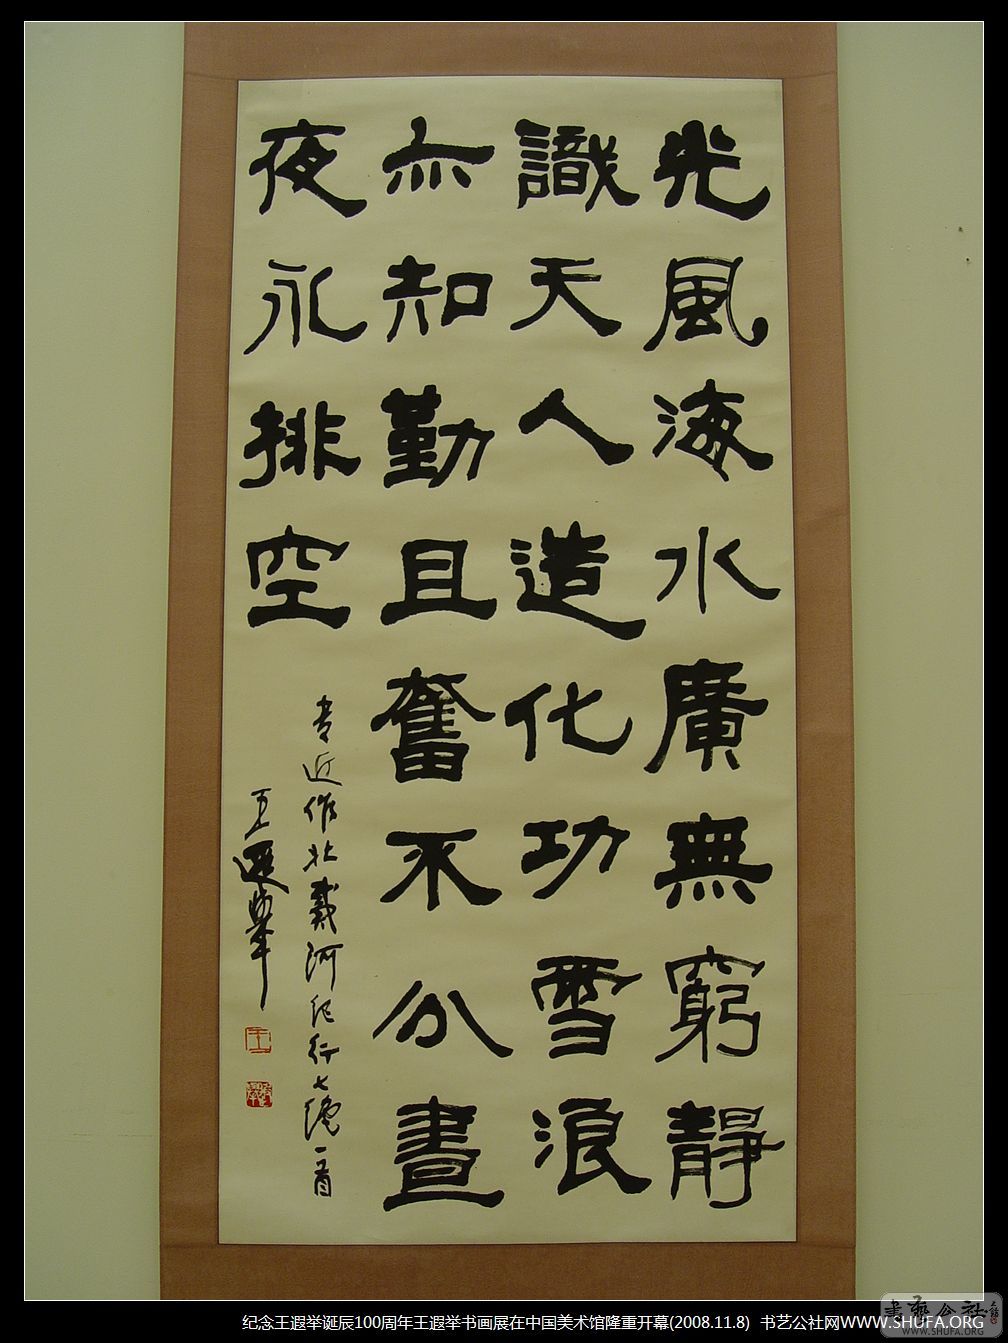 光風海水廣無窮靜
識天人造化功雪浪
亦知勤且奮不分晝
夜永排空
書近作北戴河紀行七絕一首
王遐舉
纪念王遐举诞辰100周年王遐举书画展在中国美术馆隆重开幕(2008.11.8) 书艺公社网WWW.SHUFA.ORG
書藝公社
WWW.SHUFA.ORG